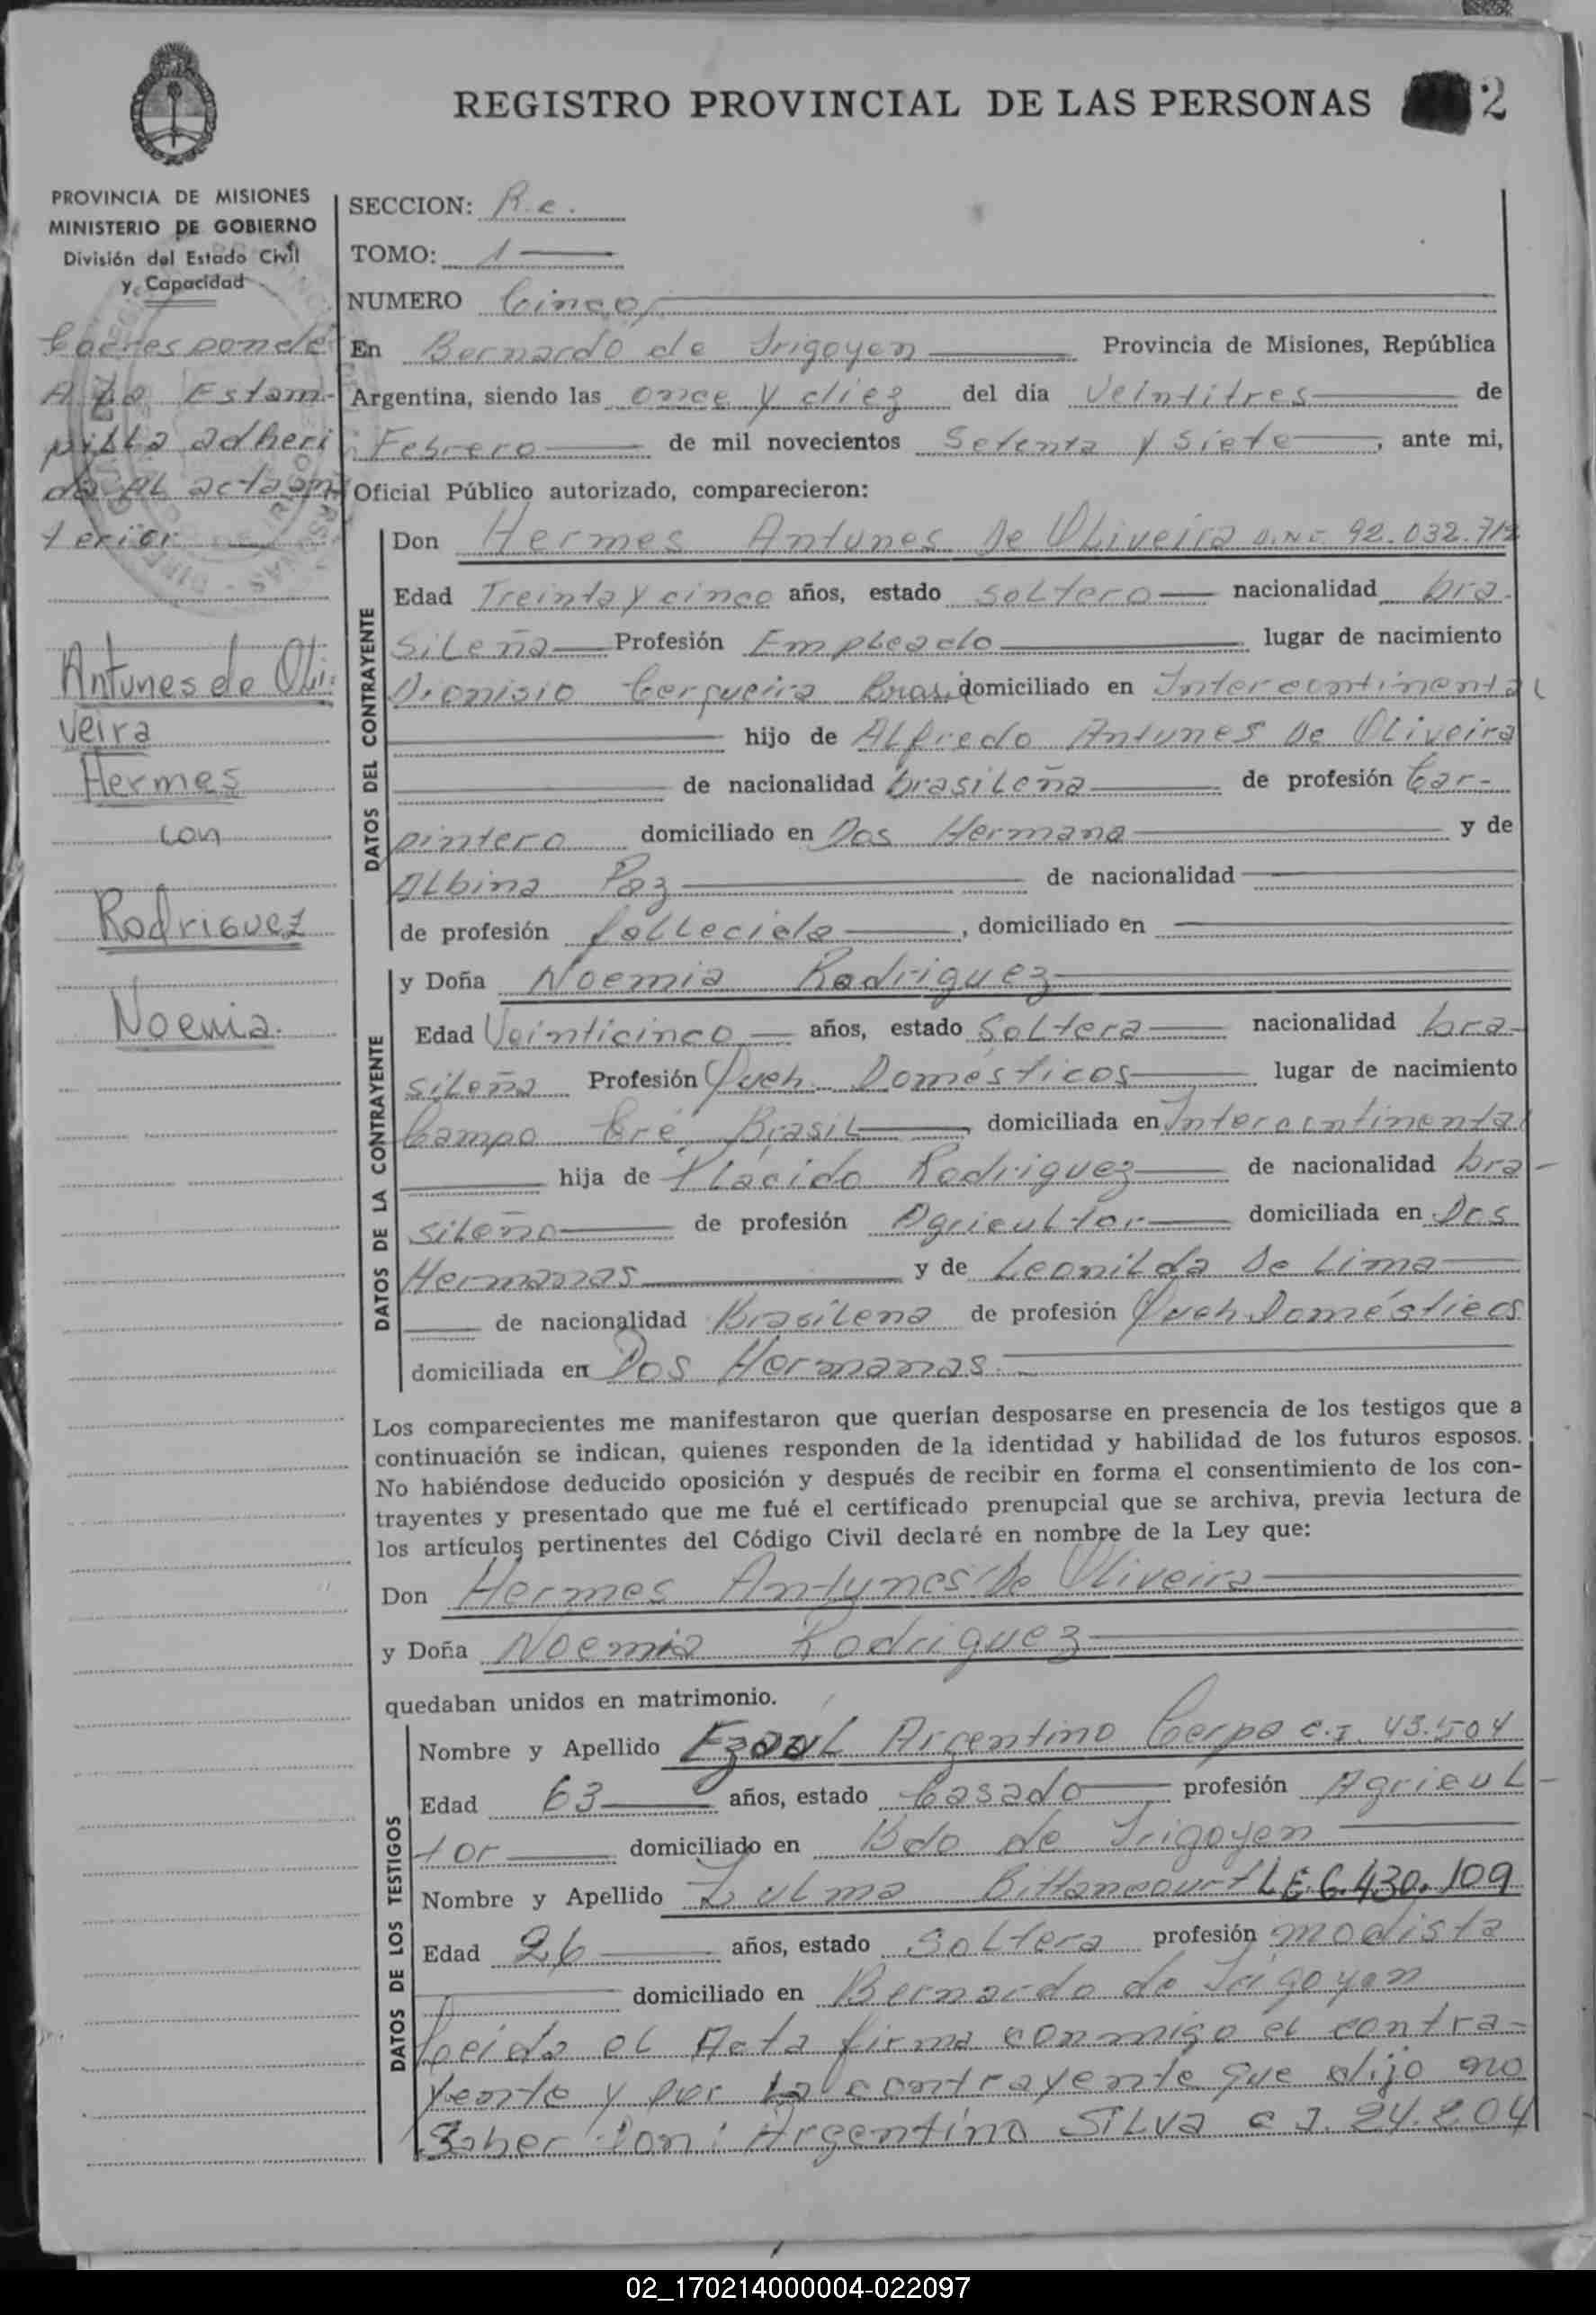 REGISTRO PROVINCIAL DE LAS PERSONAS 2
PROVINCIA DE MISIONES
MINISTERIO DE GOBIERNO
División del Estado Civil
y Capacidad
Corresponde
A la Estam-
pilla adheri
da al acta an
terior
Antunes de Oli
veira
Hermes
con
Rodriguez
Noemia.
SECCION: R.c.
TOMO: 1
NUMERO Cinco
En Bernardo de Irigoyen Provincia de Misiones, República
Argentina, siendo las once y diez del dia Veintitres de
Febrero de mil novecientos Setenta y Siete, ante mi,
Oficial Público autorizado, comparecieron:
DATOS DEL CONTRAYENTE
Don Hermes Antunes De Oliveira D.N.I. 92.032.712
Edad Treinta y cinco años, estado Soltero nacionalidad bra-
sileña Profesión Empleado lugar de nacimiento
Dionisio Cerqueira Brasil domiciliado en Intercontinental
hijo de Alfredo Antunes De Oliveira
de nacionalidad brasileña de profesión Car-
pintero domiciliado en Dos Hermana y de
Albina Paz de nacionalidad
de profesión fallecida, domiciliado en
DATOS DE LA CONTRAYENTE
y Doña Noemia Rodriguez
Edad Veinticinco años, estado Soltera nacionalidad bra-
sileña Profesión Queh. Domésticos lugar de nacimiento
Campo Eré, Brasil, domiciliada en Intercontinental
hija de Placido Rodriguez de nacionalidad bra-
sileño de profesión Agricultor domiciliada en Dos
Hermanas y de Leonilda De Lima
de nacionalidad Brasilena de profesión Queh Domésticos
domiciliada en Dos Hermanas
Los comparecientes me manifestaron que querían desposarse en presencia de los testigos que a
continuación se indican, quienes responden de la identidad y habilidad de los futuros esposos.
No habiéndose deducido oposición y después de recibir en forma el consentimiento de los con-
trayentes y presentado que me fué el certificado prenupcial que se archiva, previa lectura de
los artículos pertinentes del Código Civil declaré en nombre de la Ley que:
Don Hermes Antunes De Oliveira
y Doña Noemia Rodriguez
quedaban unidos en matrimonio.
DATOS DE LOS TESTIGOS
Nombre y Apellido Argentino Cerpa C.I. 43.504
Edad 63 años, estado Casado profesión Agricul-
tor domiciliado en Bdo de Irigoyen
Nombre y Apellido Zulma Bittancourt L E 6.430.109
Edad 26 años, estado Soltera profesión modista
domiciliado en Bernardo de Irigoyen
Leida el Acta firma conmigo el contra-
yente y por la contrayente que dijo no
Saber Don: Argentino SILVA C I. 24.204
02_170214000004-022097